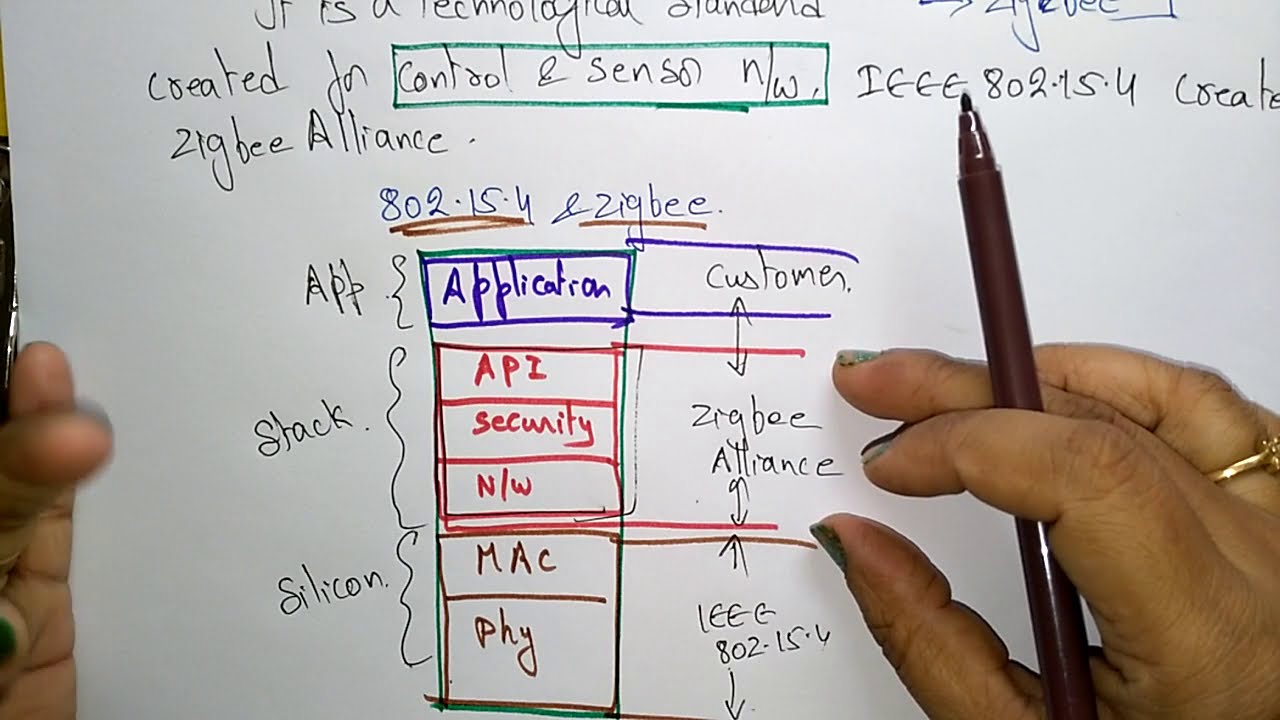 It is a Technological Standard → Zigbee
created for Control & Sensor n/w. IEEE 802.15.4 Create
Zigbee Alliance.
802.15.4 & Zigbee.
App { Application Customer.
API
Stack. { Security Zigbee
Alliance
N/W
MAC
Silicon. { IEEE
Phy 802.15.4